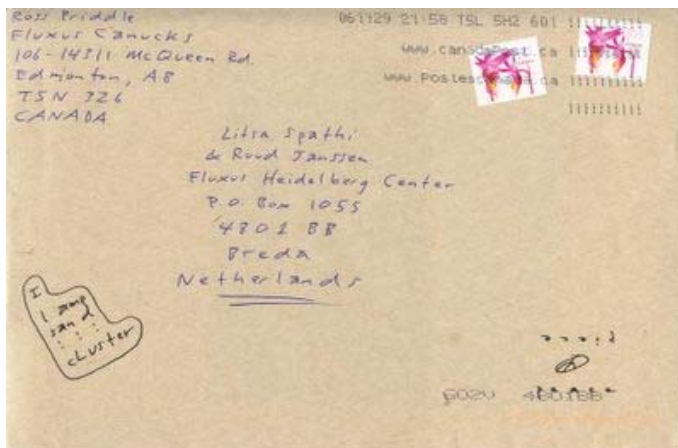 Ross Priddle
Fluxus Canucks
106-14311 McQueen Rd.
Edmonton, AB
T5N 3Z6
CANADA
061129 21:58 T5L 5H2 601
www.canadapost.ca
www.postescanada.ca
Litsa Spathi
& Ruud Janssen
Fluxus Heidelberg Center
P.O. Box 1055
4801 BB
Breda
Netherlands
I
sand
cluster
4801BB